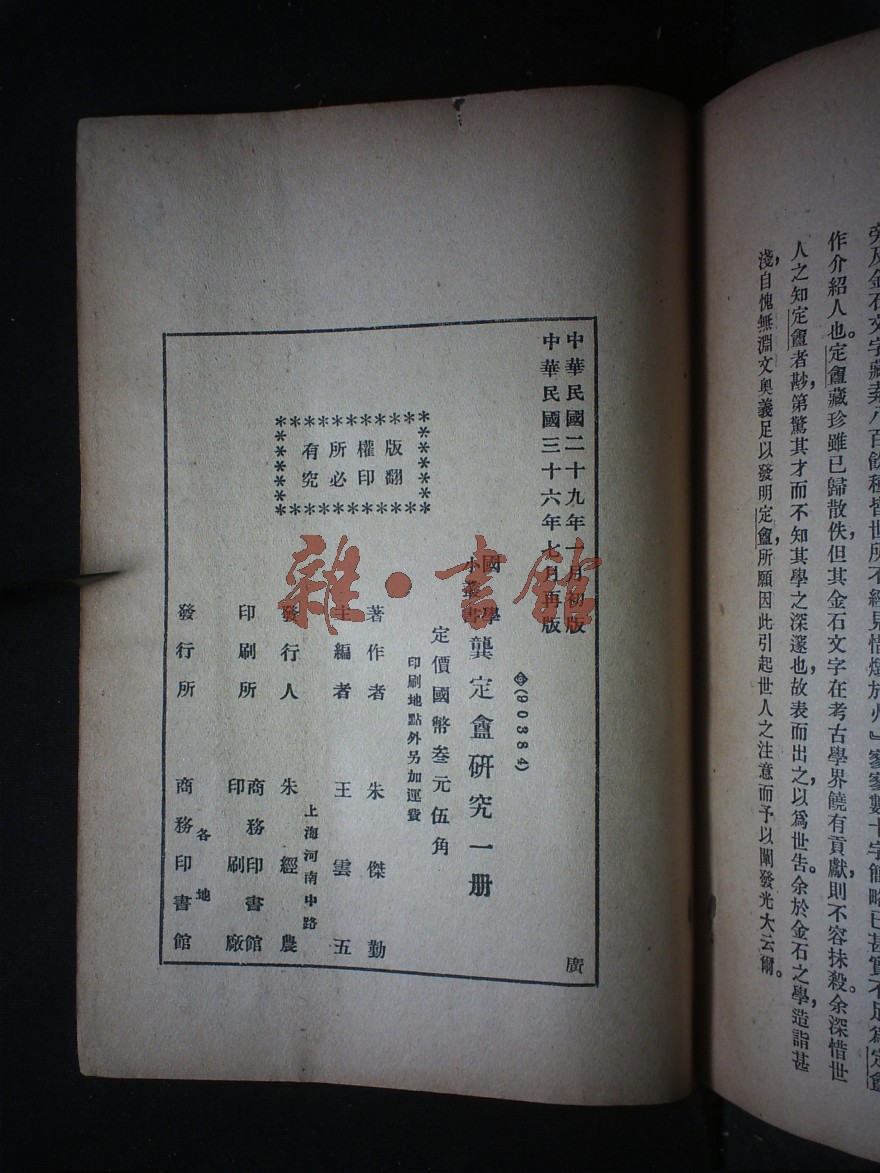 作介紹人也。定盦藏珍雖已歸散佚，但其金石文字在考古學界饒有貢獻，則不容抹殺。余深惜世
人之知定盦者尠，第驚其才而不知其學之深邃也，故表而出之，以爲世告。余於金石之學，造詣甚
淺，自愧無淵文奧義足以發明定盦，所願因此引起世人之注意而予以闡發光大云爾。
中華民國二十九年 月初版
中華民國三十六年七月再版
(90384)
國學
小叢書
龔定盦研究一册
定價國幣叁元伍角
印刷地點外另加運費
版權所有
翻印必究
著作者 朱傑勤
主編者 王雲五
上海河南中路
發行人 朱經農
印刷所 商務印書館
印刷廠
發行所 各地
商務印書館
廣
雜·書館